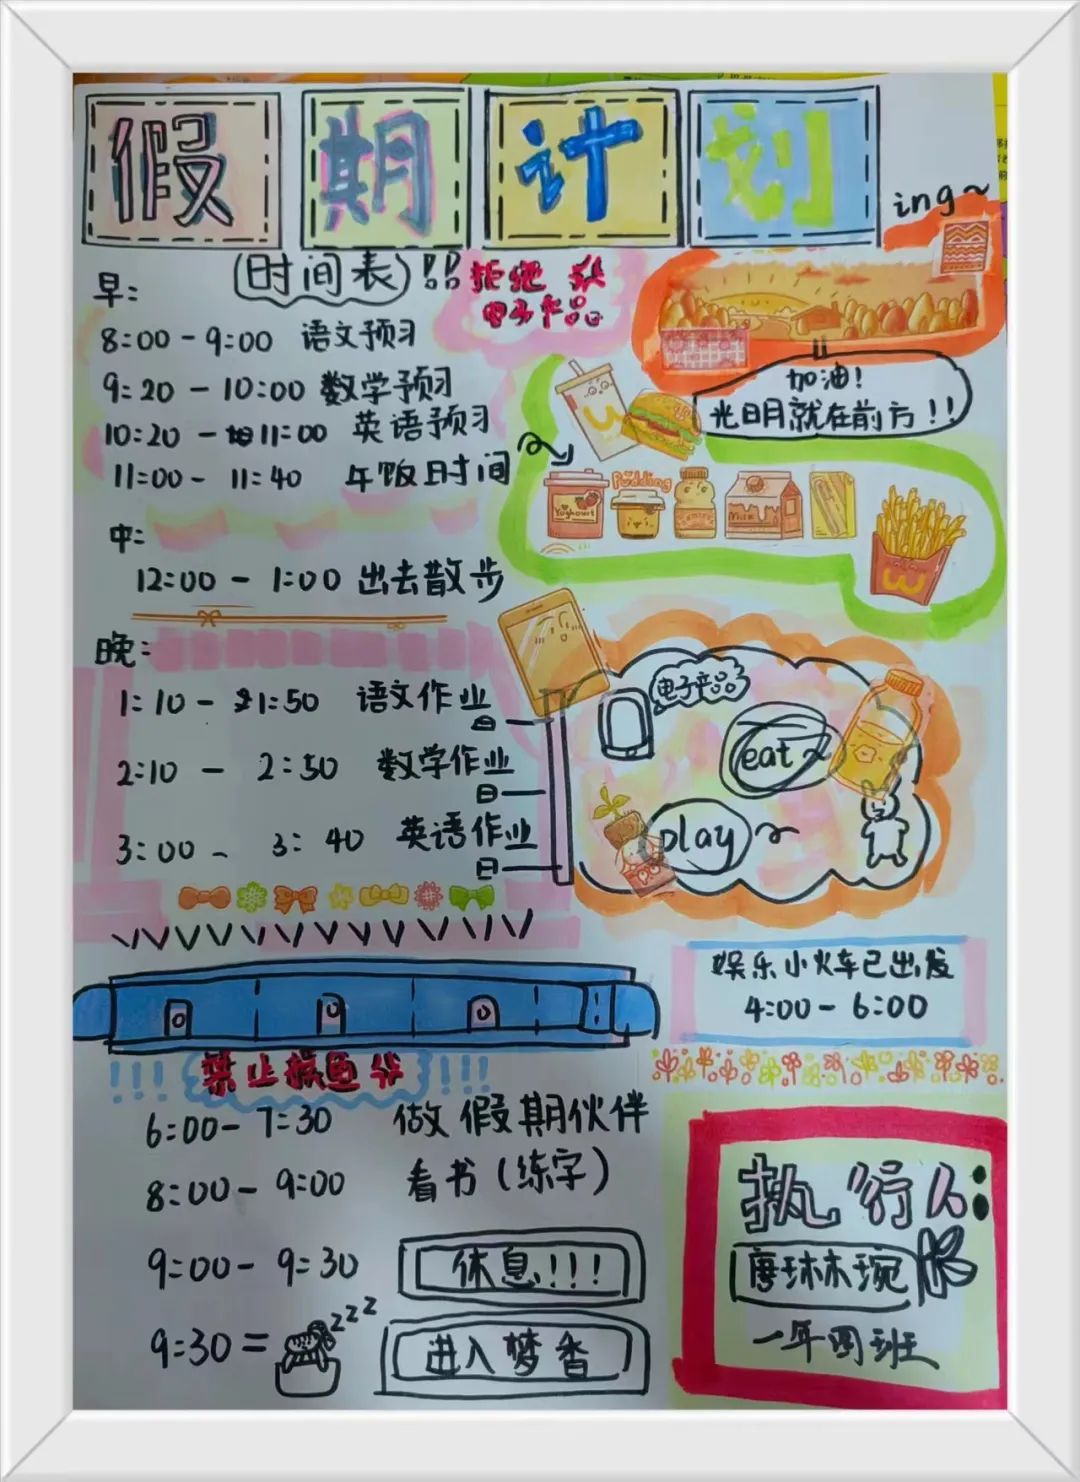 假期计划
ing~
(时间表)!!
拒绝
电子产品
早:
8:00-9:00 语文预习
9:20-10:00 数学预习
10:20-11:00 英语预习
11:00-11:40 午饭时间
加油!
光明就在前方!!
Pudding
Yoghourt
Milk
中:
12:00-1:00 出去散步
晚:
1:10-1:50 语文作业
2:10-2:50 数学作业
3:00-3:40 英语作业
电子产品
eat~
play~
娱乐小火车已出发
4:00-6:00
!!! 禁止摸鱼 !!!
6:00-7:30 做假期伙伴
8:00-9:00 看书(练字)
9:00-9:30 休息!!!
9:30= zzz 进入梦香
执行人:
唐琳琬
一年四班